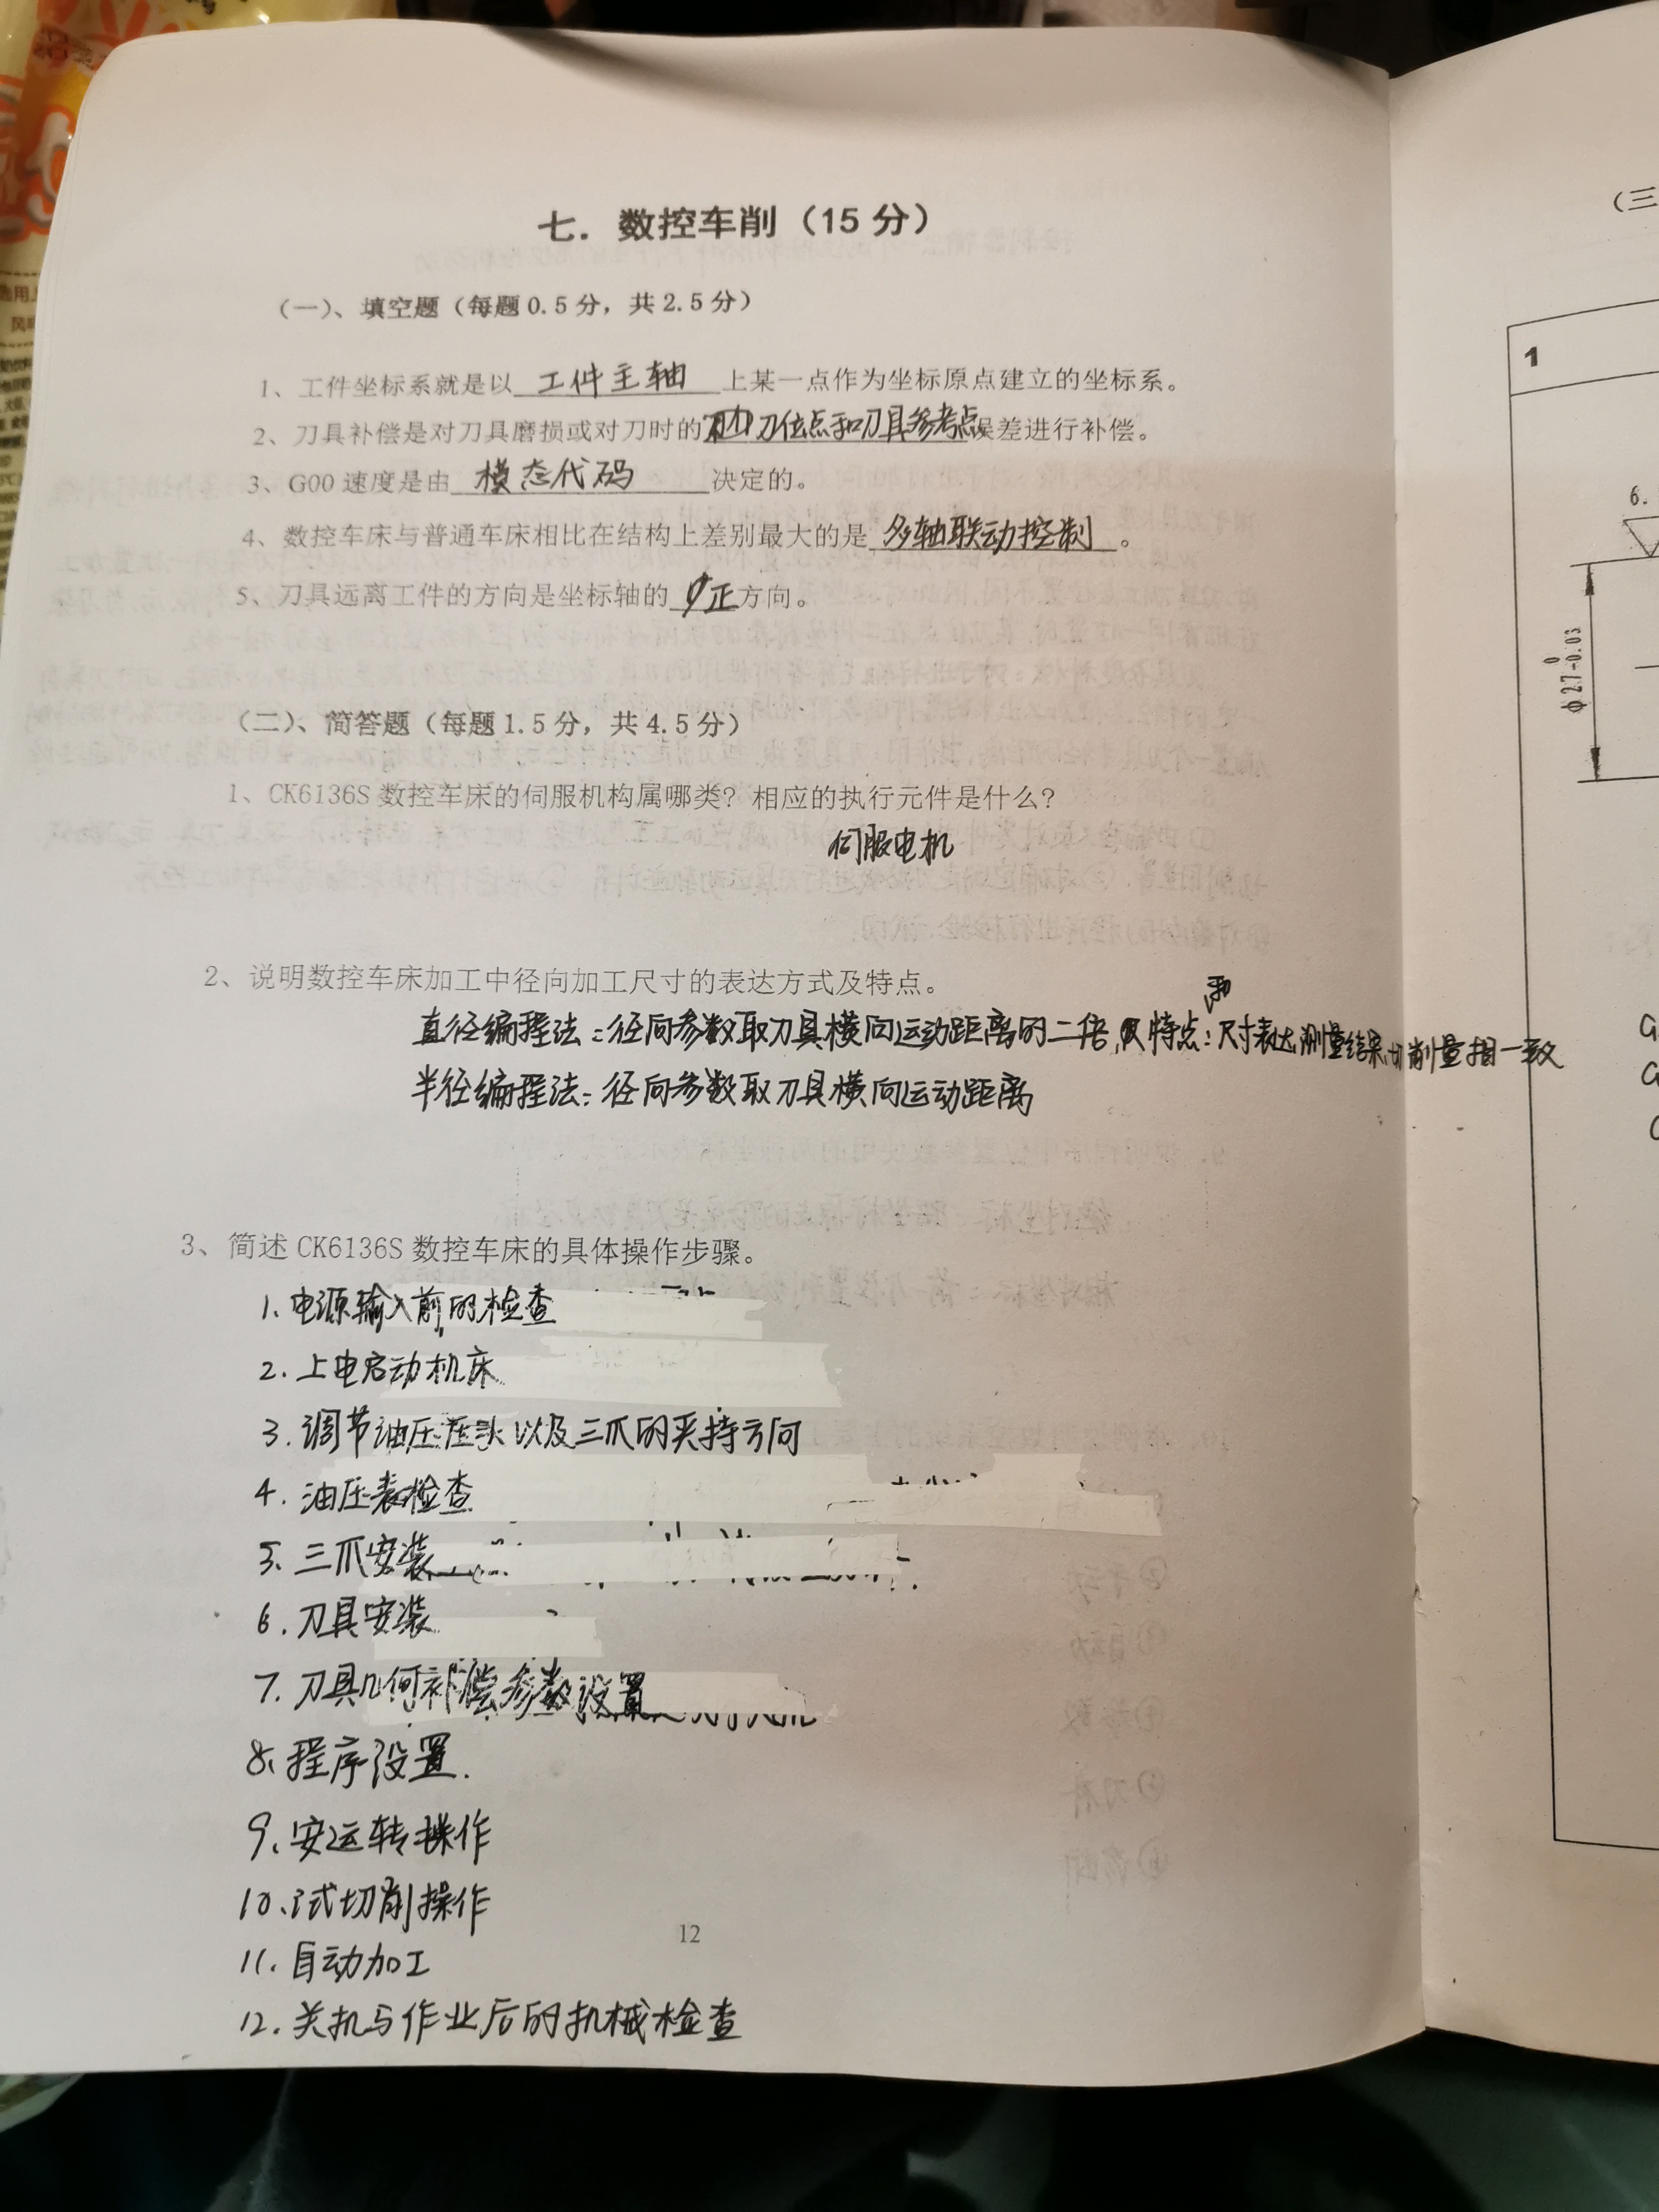 七. 数控车削（15 分）
（一）、填空题（每题 0.5 分，共 2.5 分）
1、工件坐标系就是以 工件主轴 上某一点作为坐标原点建立的坐标系。
2、刀具补偿是对刀具磨损或对刀时的 刀位点和刀具参考点 误差进行补偿。
3、G00 速度是由 模态代码 决定的。
4、数控车床与普通车床相比在结构上差别最大的是 多轴联动控制 。
5、刀具远离工件的方向是坐标轴的 正 方向。
（二）、简答题（每题 1.5 分，共 4.5 分）
1、CK6136S 数控车床的伺服机构属哪类？相应的执行元件是什么？
伺服电机
2、说明数控车床加工中径向加工尺寸的表达方式及特点。
直径编程法：径向参数取刀具横向运动距离的二倍, 特点：尺寸表达 测量结果和切削量相一致
半径编程法：径向参数取刀具横向运动距离
3、简述 CK6136S 数控车床的具体操作步骤。
1.电源输入前的检查
2.上电启动机床
3.调节油压压头以及三爪的夹持方向
4.油压表检查
5.三爪安装
6.刀具安装
7.刀具几何补偿参数设置
8.程序设置.
9.安运转操作
10.试切削操作
11.自动加工
12.关机与作业后的机械检查
12
（三
1
6.
φ27 0 -0.03